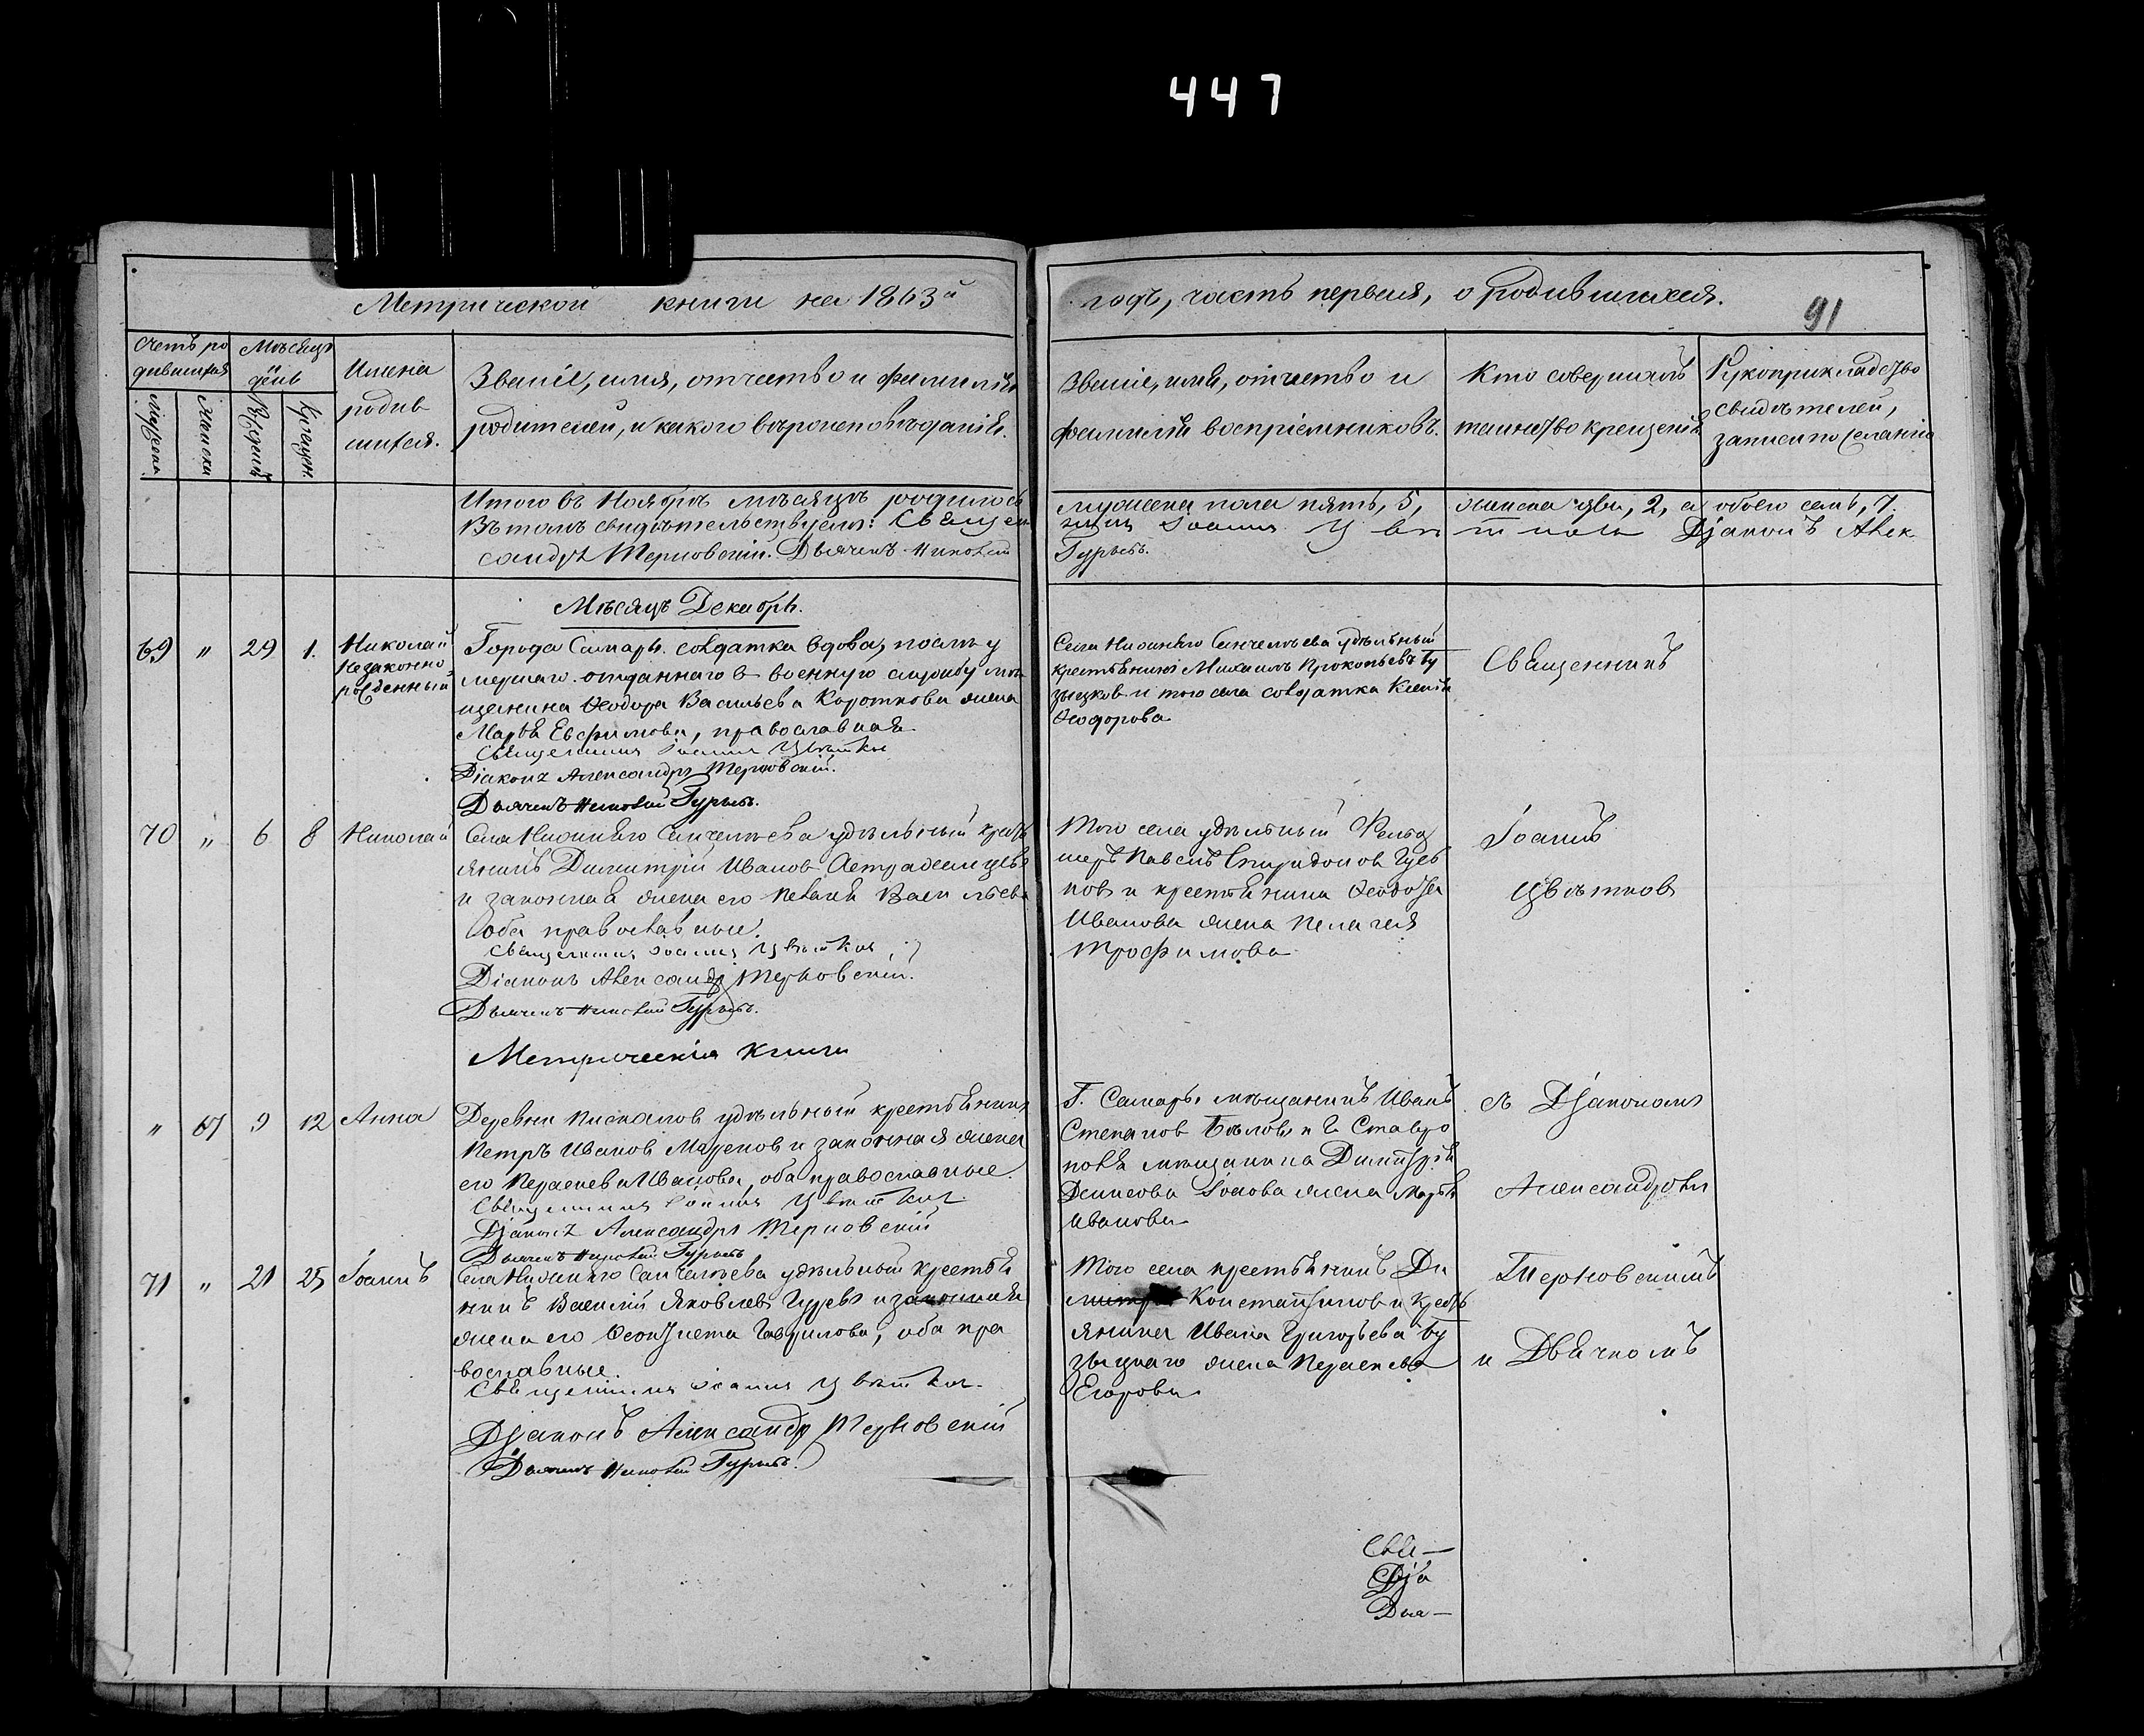 447
Метрической книги на 1863й
годъ, часть первая, о родившихся.
91
Счетъ ро
дившихся
Мѣсяцъ
и
день
Мужеска
Женска
Рожденія
Крещен.
Имена
родив
шихся.
Званіе, имя, отчество и фамилія
родителей, и какого вѣроисповѣданія.
Званіе, имя, отчество и
фамилія воспріемниковъ.
Кто совершалъ
таинство крещенія
Рукоприкладство
свидѣтелей,
записи по желанію
Итого въ Ноябрѣ мѣсяцѣ родилось
мужеска пола пять, 5, женска два, 2, а обоего семь, 7.
Въ томъ свидѣтельствуемъ: Священ
никъ Іоаннъ Цвѣтковъ Діаконъ Алек
сандръ Терновскій. Дьячекъ Николай
Гурьевъ.
Мѣсяцъ Декабрь.
69 " 29 1. Николай
незаконно
рожденный
Города Самары солдатка вдова, послѣ у
мершаго отданнаго в военную службу мѣ
щанина Ѳеодора Васильева Короткова жена
Марѳа Евфимова, православная.
Священникъ Іоаннъ Цвѣтковъ
Діаконъ Александръ Терновскій.
Дьячекъ Николай Гурьевъ.
Села Нижняго Санчелѣева удѣльный
крестьянинъ Михаилъ Прокопьевъ Бу
зыцков и того села солдатка Ксенія
Ѳеодорова
Священникъ
70 " 6 8 Николай
Села Нижняго Санчелѣева удѣльный крест
янинъ Димитрій Иванов Астраханцевъ
и законная жена его Пелагія Васильева
оба православные.
Священникъ Іоаннъ Цвѣтковъ
Діаконъ Александръ Терновскій.
Дьячекъ Николай Гурьевъ.
Того села удѣльный Фельд
шеръ Павелъ Спиридонов
нов и крестьянина Ѳеодора
Иванова жена Пелагея
Трофимова
Іоаннъ
Цвѣтков
Метрическія книги
" 67 9 12 Анна
Деревни Пискалов удѣльный крестьянинъ
Петръ Иванов Мазенов и законная жена
его Парасковья Иванова, оба православные.
Священникъ Іоаннъ Цвѣтковъ
Діаконъ Александръ Терновскій
Дьячекъ Николай Гурьевъ
Г. Самары мѣщанинъ Иванъ
Степанов Бѣловъ и Г. Ставро
поля мѣщанина Димитрія
Денисова жена Марія
Иванова
съ Діакономъ
Александромъ
71 " 21 25 Іоаннъ
Села Нижняго Санчелѣева удѣльный крестья
нинъ Василій Яковлевъ Гурьевъ и законная
жена его Ѳеоктиста Гаврилова, оба пра
вославные.
Священникъ Іоаннъ Цвѣтковъ.
Діаконъ Александръ Терновскій
Дьячекъ Николай Гурьевъ.
Того села крестьянинъ Ди
митрій Константинов и крест
янина Ивана Григорьева Бу
зыцкаго жена Парасковья
Егорова.
Терновскимъ
и Дьячкомъ
Свя—
Діа
Дья—